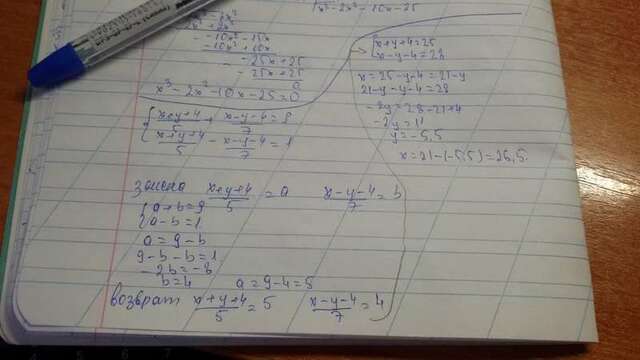 x³-2x²-10x-25
-10x²-15x
-10x²+10x
-25x+25
-25x+25
0
x³-2x²-10x-25=0
{ (x+y+4)/5 + (x-y-4)/7 = 9
(x+y+4)/5 - (x-y-4)/7 = 1
замена (x+y+4)/5 = a (x-y-4)/7 = b
{ a+b=9
a-b=1
a=9-b
9-b-b=1
-2b=-8
b=4 a=9-4=5
возврат (x+y+4)/5 = 5 (x-y-4)/7 = 4
{ x+y+4=25
x-y-4=28
x=25-y-4=21-y
21-y-y-4=28
-2y=28-21+4
-2y=11
y=-5,5
x=21-(-5,5)=26,5.